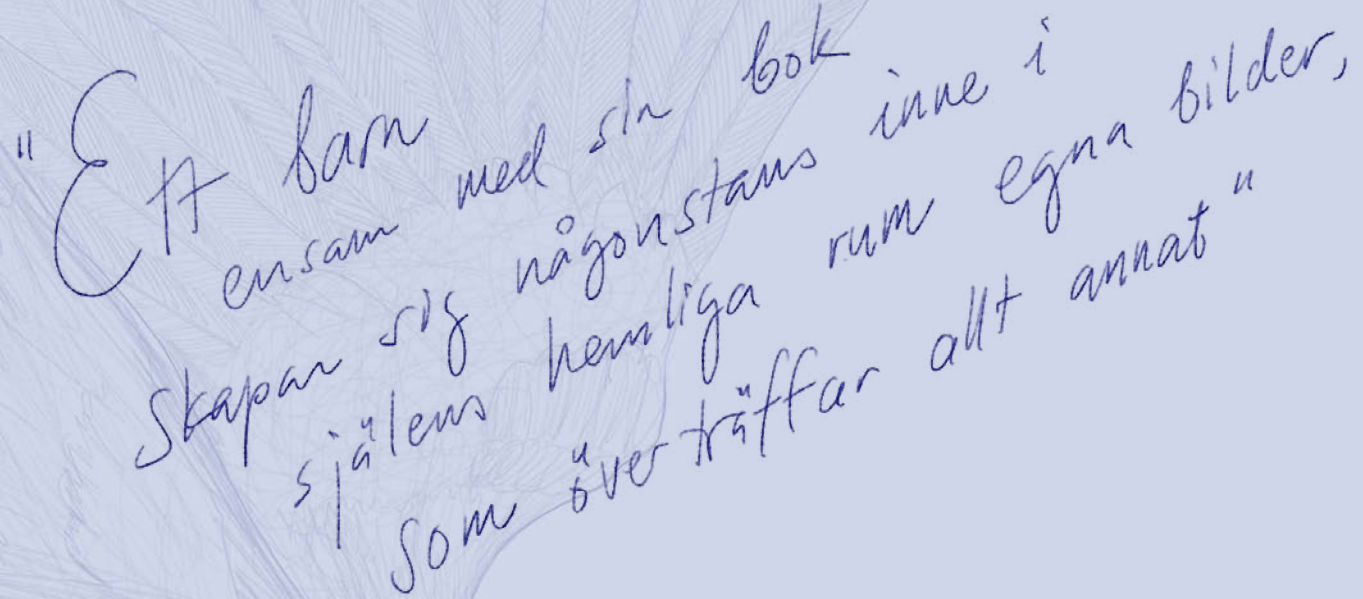 "Ett barn
ensam med sin bok
skapar sig någonstans inne i
själens hemliga rum egna bilder,
som överträffar allt annat"